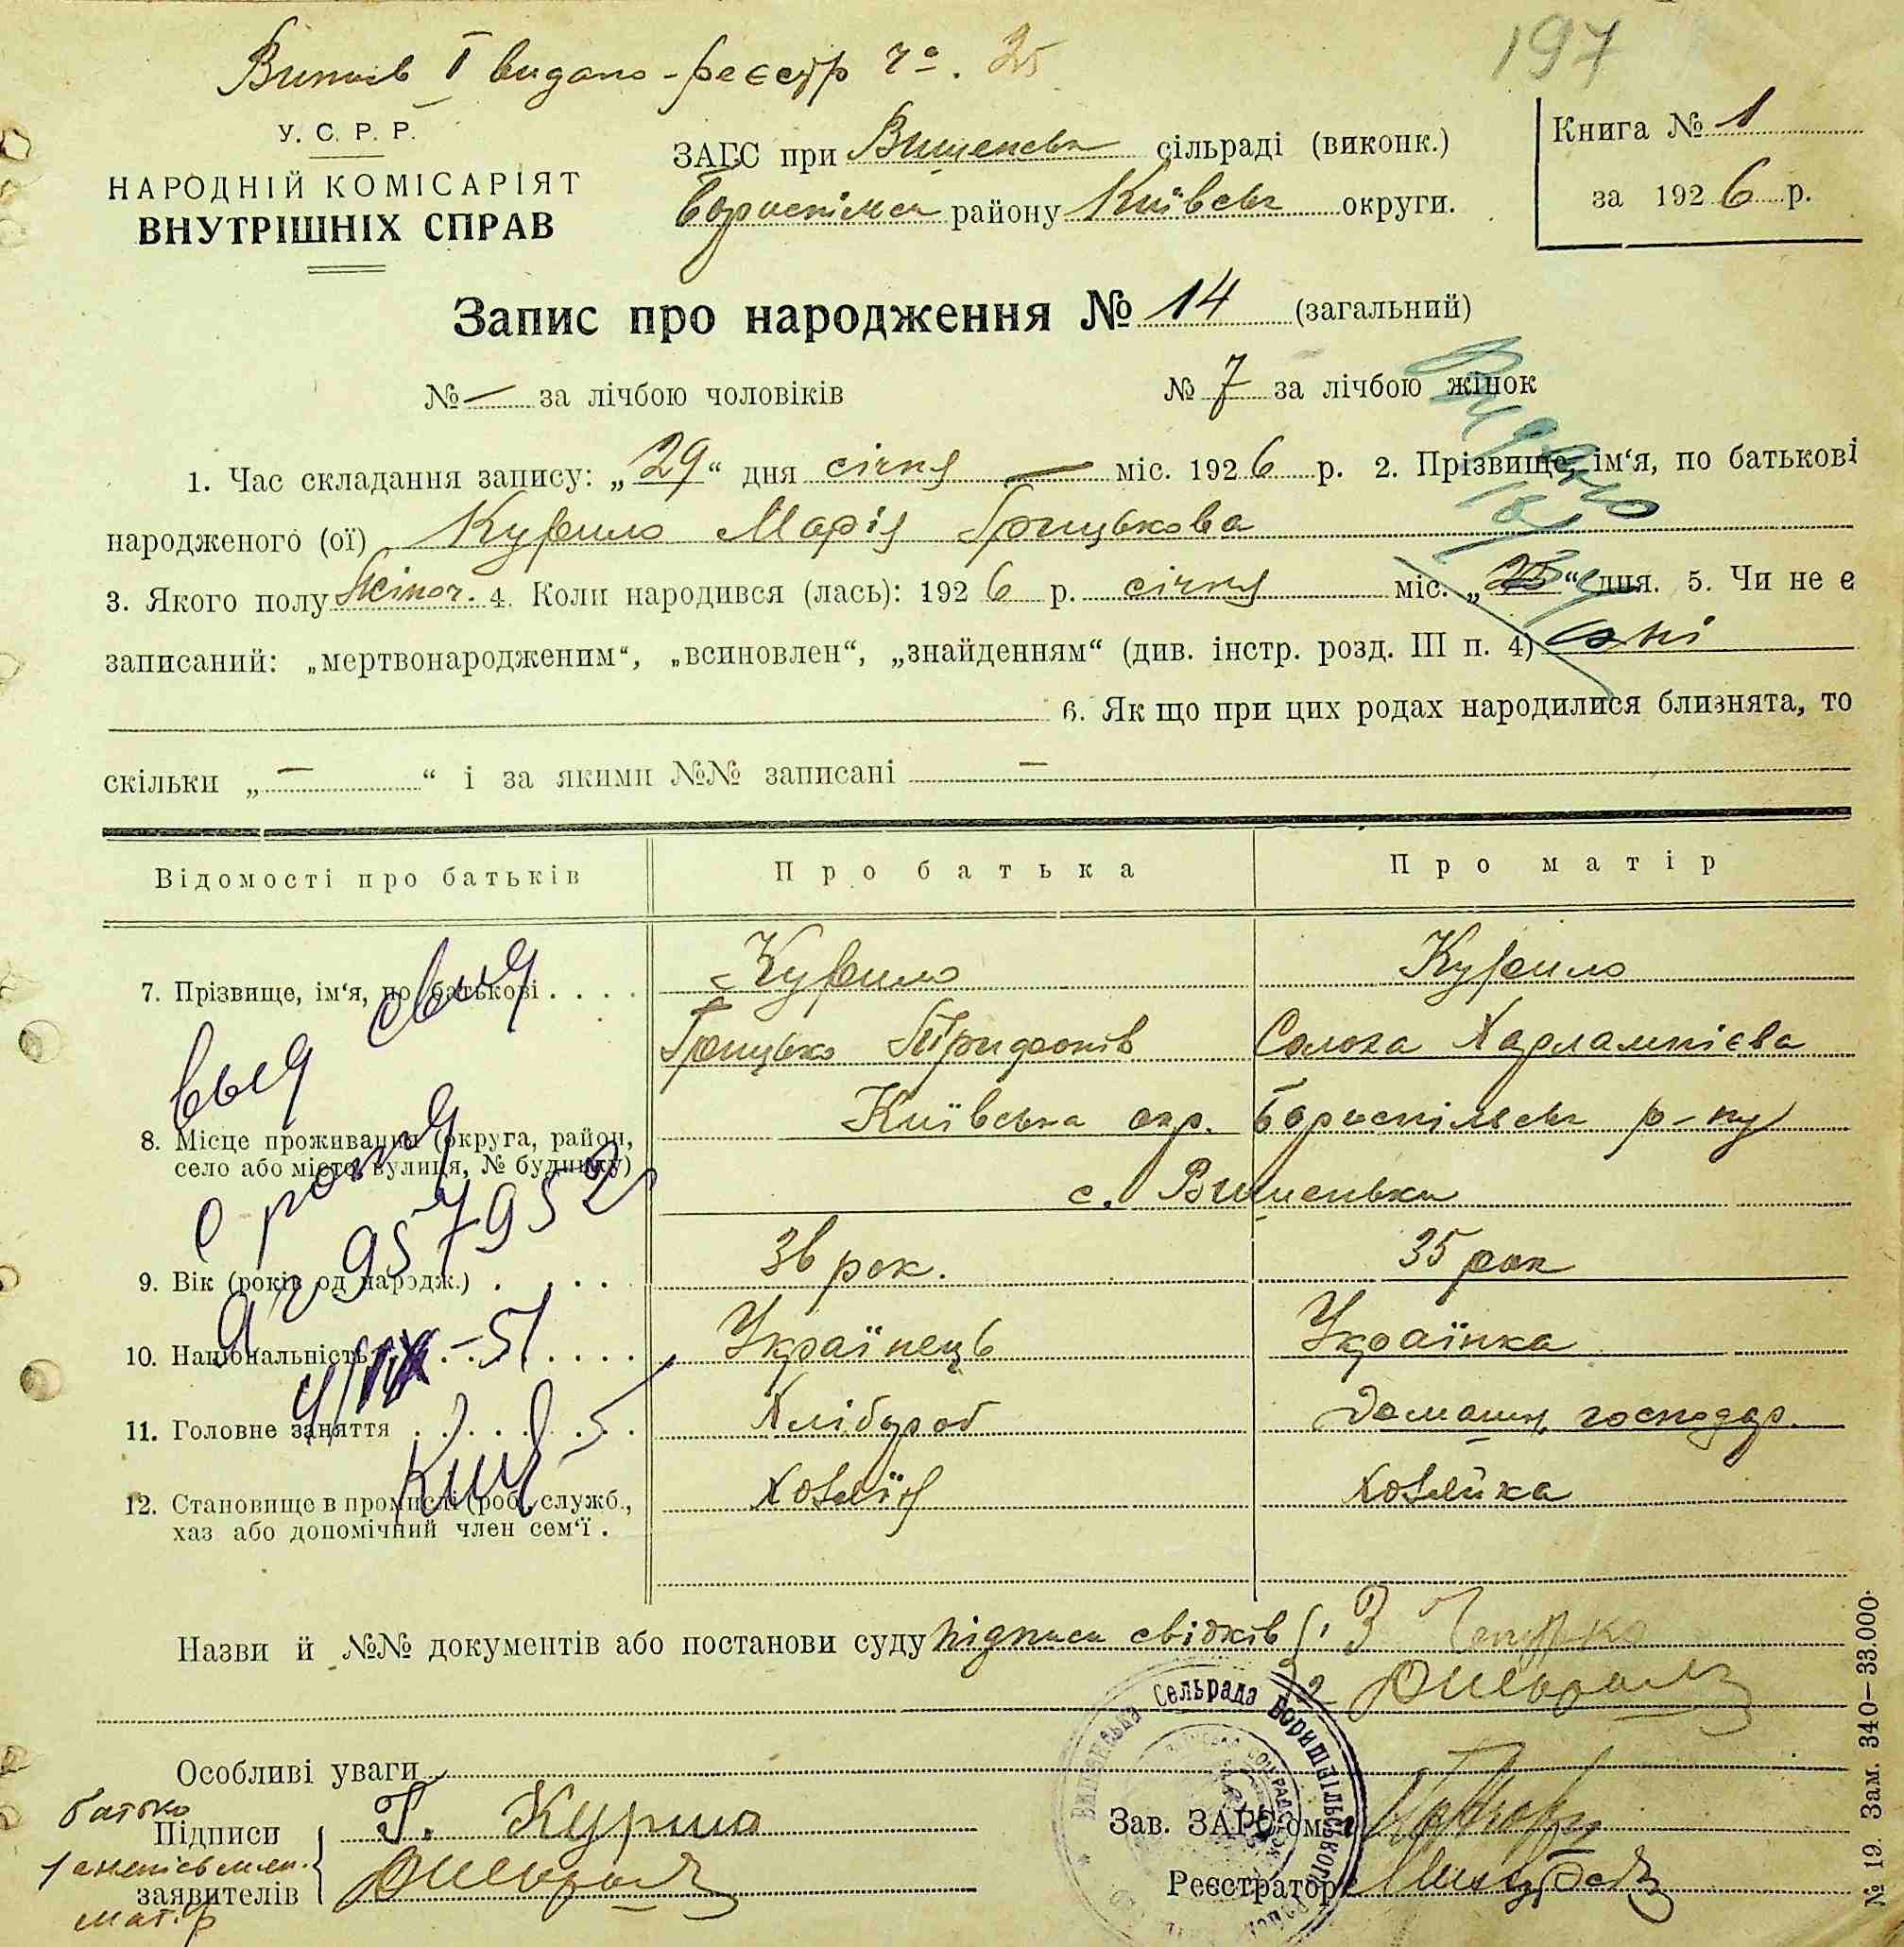 197
Випись І видано - реєстр чо. 25
У. С. Р. Р.
НАРОДНІЙ КОМІСАРІЯТ
ВНУТРІШНІХ СПРАВ
ЗАГС при Вишенськ сільраді (виконк.)
району Київськ округи.
Книга № 1
за 1926 р.
Запис про народження № 14 (загальний)
№ — за лічбою чоловіків № 7 за лічбою жінок
Видано
1. Час складання запису: „29“ дня січня — міс. 1926 р. 2. Прізвище, ім‘я, по батькові
народженого (ої) Курило Марія Грицькова
3. Якого полу жіноч. 4. Коли народився (лась): 1926 р. січня міс. „ “ дня. 5. Чи не є
записаний: „мертвонародженим“, „всиновлен“, „знайденням“ (див. інстр. розд. III п. 4) ні
6. Як що при цих родах народилися близнята, то
скільки „ — “ і за якими №№ записані —
Відомості про батьків Про батька Про матір
7. Прізвище, ім‘я, по батькові . . . . Курило Курило
Грицько Трифонів Солоха Харлампієва
8. Місце проживання (округа, район, Київська окр. Бориспільськ р-ну
село або місто, вулиця, № будинку) с. Вишеньки
9. Вік (років од народж.) . . . . 36 рок. 35 рок
10. Національність . . . . Українець Українка
11. Головне заняття . . . . Хлібороб Домашн. господар.
12. Становище в промислі (роб., служб., Хозяїн Хозяйка
хаз або допомічний член сем‘ї .
выд свид
о рожд
957952
4/IX - 51
Назви й №№ документів або постанови суду підписи свідків 1. З
2
Особливі уваги
батько
Підписи Г. Курило
заявителів
Зав. ЗАГС‘ом
Реєстратор
Сельрада Боришпільського
№ 19. Зам. 340—33.000.